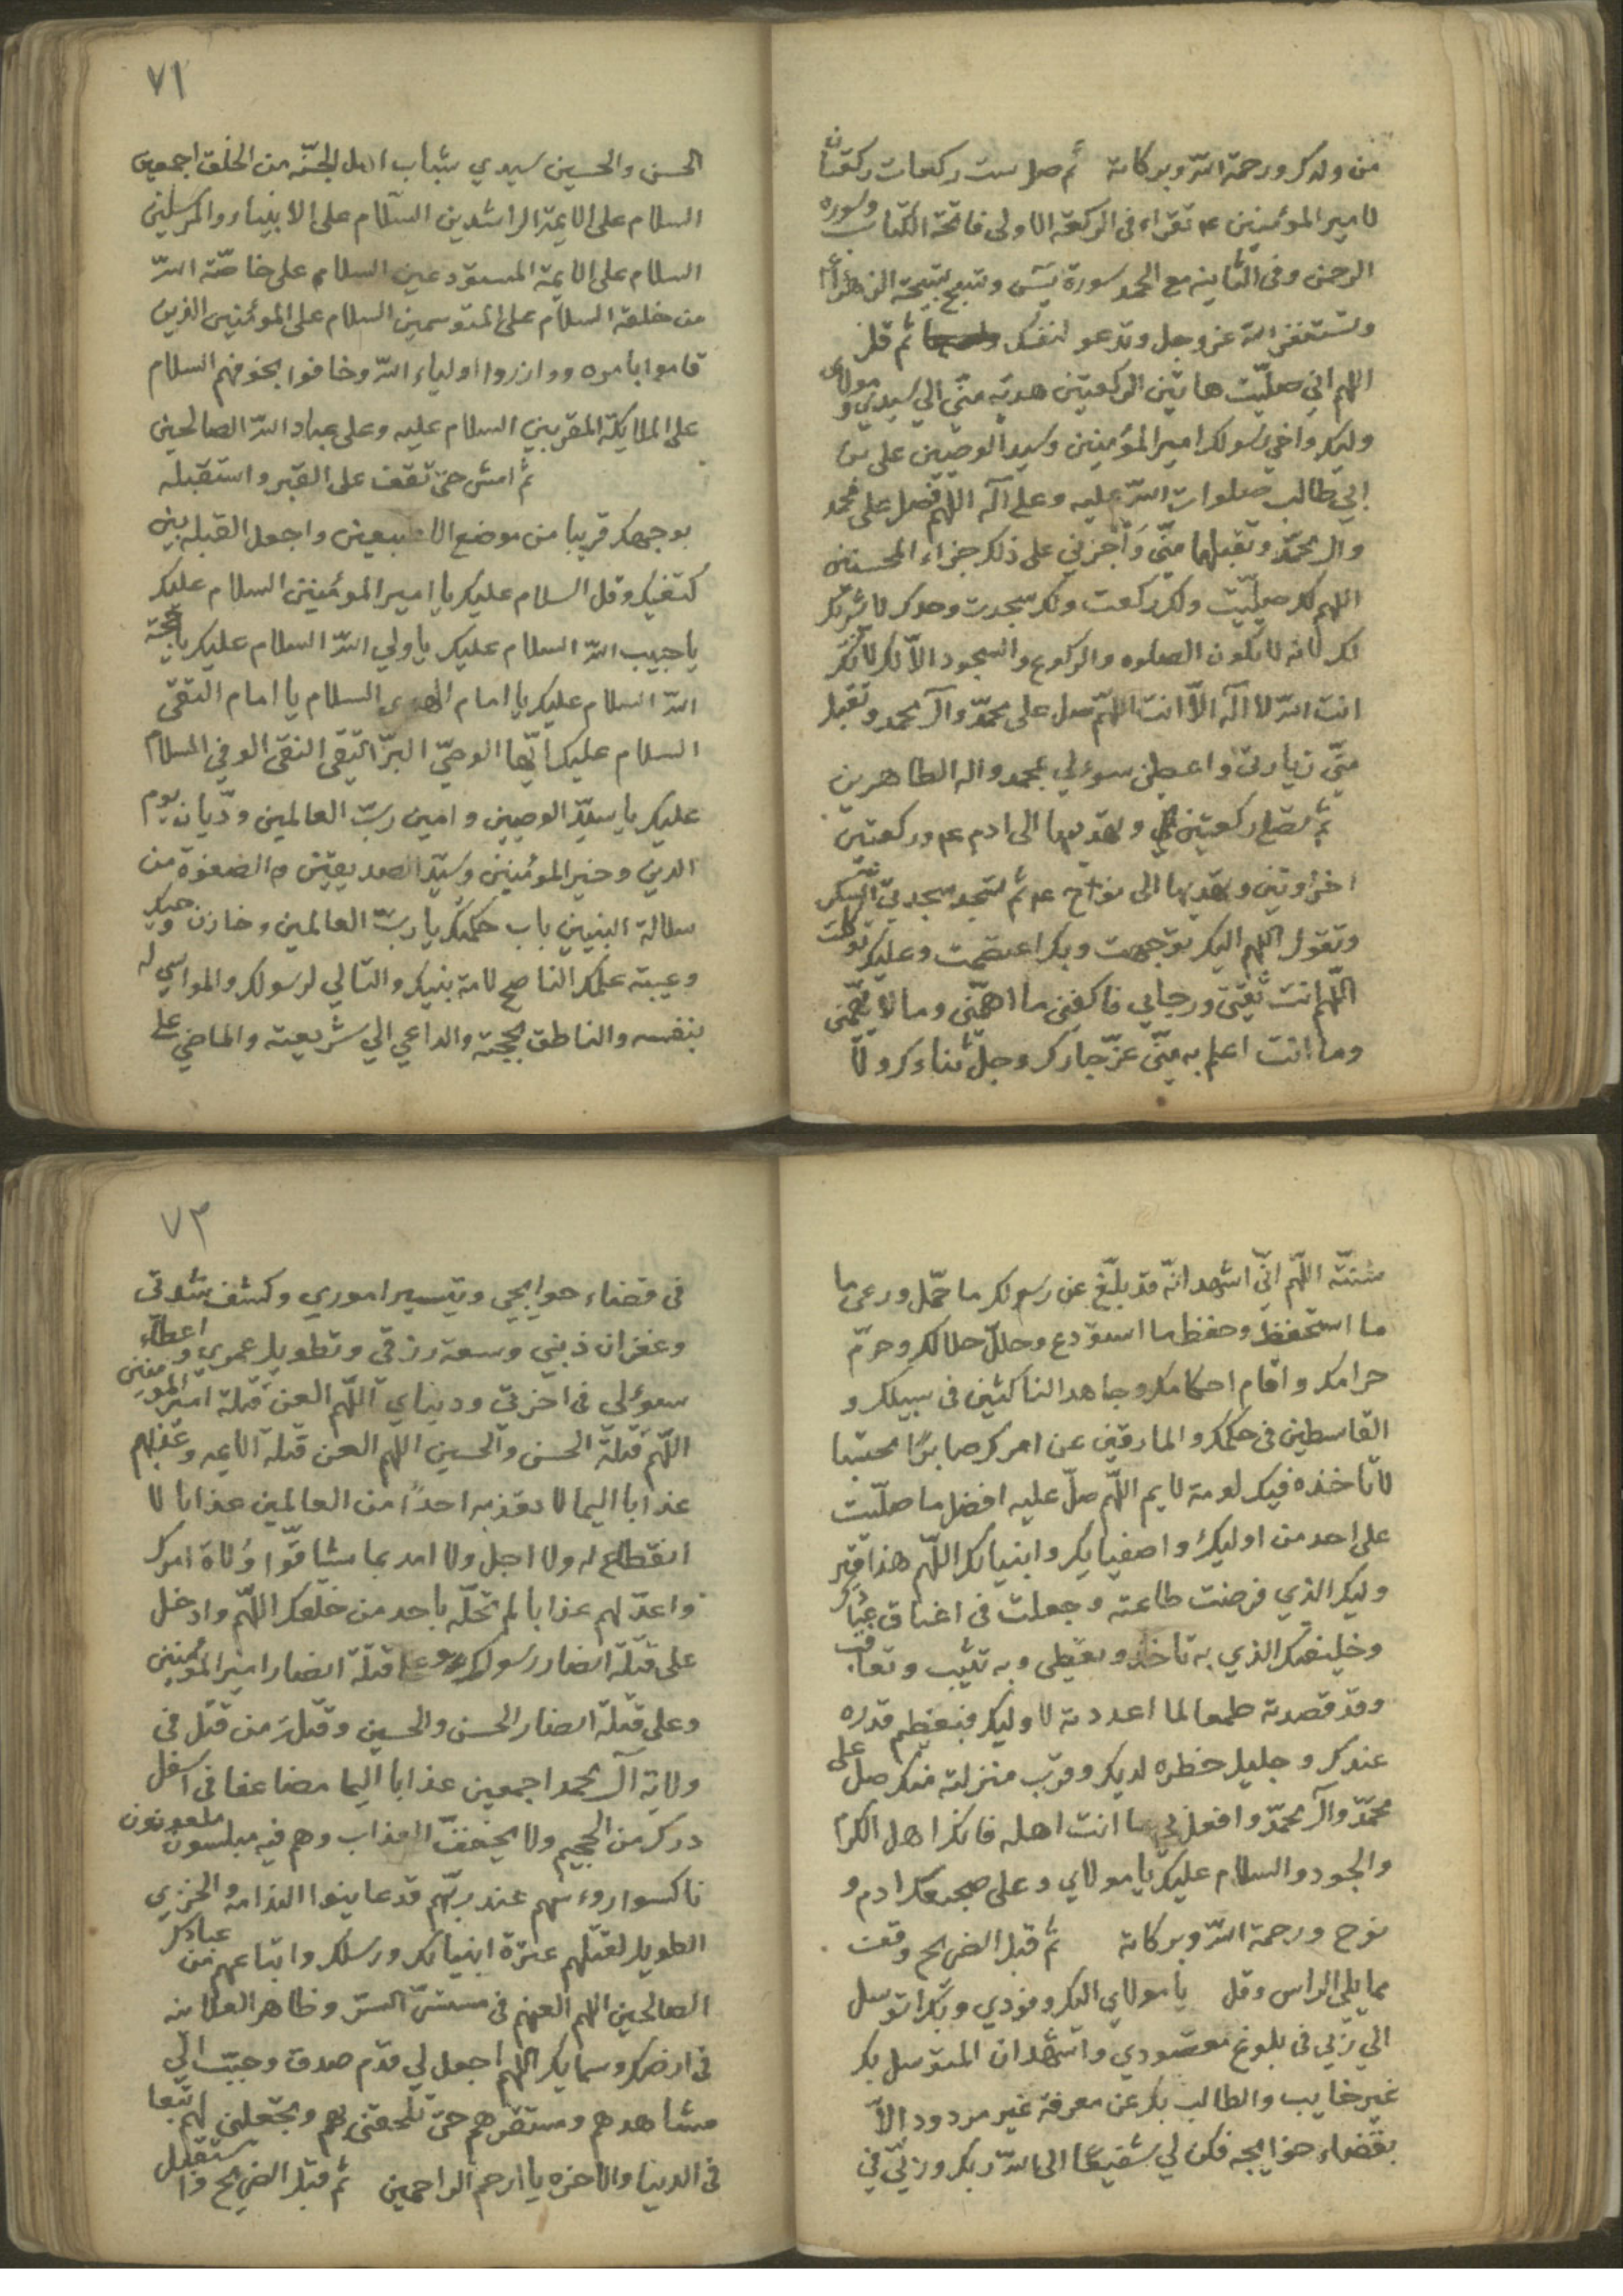 من ولدك ورحمة الله وبركاته ثم صل ست ركعات ركعتان
لامير المؤمنين عم تقراء فى الركعة الاولى فاتحة الكتاب وسوره
الرحمن وفى الثانيه مع الحمد سورة يس وتسبح تسبيحة الزهراء
وتستغفر الله عز وجل وتدعو لنفسك ثم قل
اللهم اني صليت هاتين الركعتين هديه منى الي سيدي ومولاى
وليك واخي رسولك امير المؤمنين وسيد الوصيين على بن
ابي طالب صلوات الله عليه وعلى آله اللهم فصل على محمد
وال محمد وتقبلها منى وأجزني على ذلك جزاء المحسنين
اللهم لك صليت ولك ركعت ولك سجدت وحدك لا شريك
لك لانه لا يكون الصلوه والركوع والسجود الا لك لانك
انت الله لا اله الا انت اللهم صل على محمد وآل محمد وتقبل
منى زيارتى واعطنى سوءلي بمحمد واله الطاهرين
ثم تصلى ركعتين وتهديها الى ادم عم وركعتين
اخراوتين وتهديها الى نواح عم ثم تسجد سجدتى الشكر
وتقول اللهم اليك توجهت وبك اعتصمت وعليك توكلت
اللهم انت ثقتى ورجايي فاكفنى ما اهمنى وما لا يهمنى
وما انت اعلم به منى عز جارك وجل ثناءك ولا
٧١
الحسن والحسين سيدي شباب اهل الجنه من الخلق اجمعين
السلام على الايمة الراشدين السلام على الانبياء والمرسلين
السلام على الايمة المستودعين السلام على خاصة الله
من خلقه السلام على المتوسمين السلام على المومنين الذين
قاموا بامره ووازروا اولياء الله وخافوا بخوفهم السلام
على الملايكة المقربين السلام عليه وعلى عباد الله الصالحين
ثم امش حتى تقف على القبر واستقبله
بوجهك قريبا من موضع الاصبعين واجعل القبله بين
كتفيك وقل السلام عليك يا امير المومنين السلام عليك
يا حبيب الله السلام عليك يا ولي الله السلام عليك يا حجة
الله السلام عليك يا امام الهدى السلام يا امام التقى
السلام عليك ايها الوصي البر التقى النقى الوفي السلام
عليك يا سيد الوصيين وامين رب العالمين وديان يوم
الدين وخير المومنين وسيد الصديقين والصفوة من
سلالة النبيين باب حكمتك يا رب العالمين وخازن وحيك
وعيبته علمك الناصح لامة نبيك والتالي لرسولك والمواسي له
بنفسه والناطق بحجته والداعي الي شريعته والماضي على
سنته اللهم انى اشهد انه قد بلغ عن رسولك ما حمل ورعى ما
ما استحفظ وحفظ ما استودع وحلل حلالك وحرم
حرامك واقام احكامك وجاهد الناكثين فى سبيلك و
القاسطين فى حكمك والمارقين عن امرك صابرا محتسبا
لا تاخذه فيك لومة لايم اللهم صل عليه افضل ما صليت
على احد من اوليك واصفيايك وانبيائك اللهم هذا قبر
وليك الذي فرضت طاعته وجعلت فى اعناق عبادك
وخليفتك الذي به تاخذ وتعطى وبه تثيب وتعاقب
وقد قصدته طمعا لما اعددته لاوليك فبعظيم قدره
عندك وجليل خطره لديك وقرب منزلته منك صل على
محمد وآل محمد وافعل بي ما انت اهله فانك اهل الكرم
والجود والسلام عليك يا مولاي وعلى ضجيعيك ادم و
نوح ورحمة الله وبركاته ثم قبل الضريح وقف
مما يلى الراس وقل يا مولاي اليك وفودي وبك اتوسل
الي ربي فى بلوغ مقصودي واشهد ان المتوسل بك
غير خايب والطالب بك عن معرفة غير مردود الا
بقضاء حوايجه فكن لي شفيعا الى الله ربك وربي في
٧٣
فى قضاء حوايجي وتيسير اموري وكشف شدتى
وغفران ذنبي وسعة رزقى وتطويل عمري واعطاء
سوءلى فى اخرتى ودنياي اللهم العن قتلة امير المومنين
اللهم قتلة الحسن والحسين اللهم العن قتلة الايمه وعذبهم
عذابا اليما لا تعذبه احدا من العالمين عذابا لا
انقطاع له ولا اجل ولا امد بما شاقوا ولاة امرك
واعد لهم عذابا لم تحله باحد من خلقك اللهم وادخل
على قتلة انصار رسولك وعلى قتلة انصار امير المومنين
وعلى قتلة انصار الحسن والحسين وقتل من قتل فى
ولاية آل محمد اجمعين عذابا اليما مضاعفا فى اسفل
درك من الجحيم ولا يخفف العذاب وهم فيه مبلسون ملعونون
ناكسوا روءسهم عند ربهم قد عاينوا الندامه والخزي
الطويل لقتلهم عترة انبيائك ورسلك واتباعهم من عبادك
الصالحين اللهم العنهم فى مستسر السر وظاهر العلانيه
فى ارضك وسمايك اللهم اجعل لي قدم صدق وحبب الي
مشاهدهم ومستقرهم حتى تلحقنى بهم وتجعلنى لهم تبعا
فى الدنيا والاخره يا ارحم الراحمين ثم قبل الضريح واستقبل